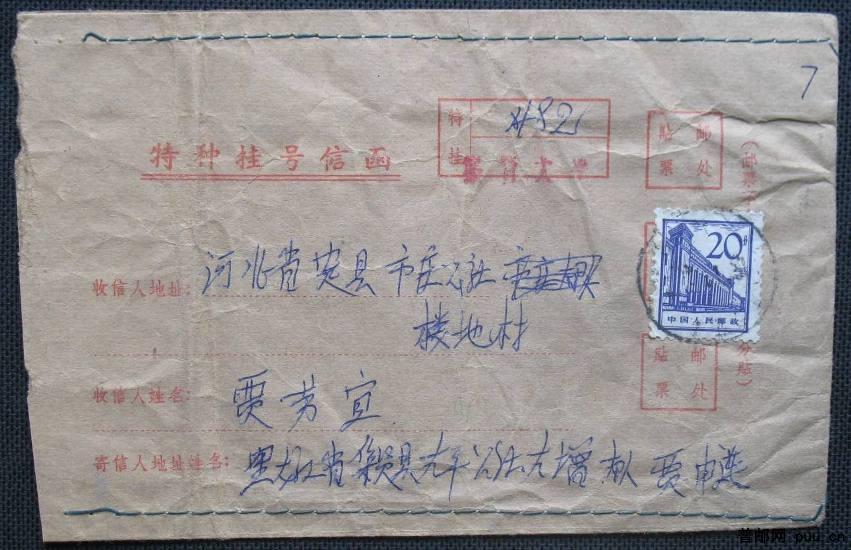 7
特 482
挂
特种挂号信函
贴 邮
票 处
20分
中国人民邮政
收信人地址：河北省定县市庄公社
楼地村
贴 邮
票 处
收信人姓名：贾芳宣
寄信人地址姓名：黑龙江省 县太平公社 增 队 贾申燕
普邮网 puu.cn